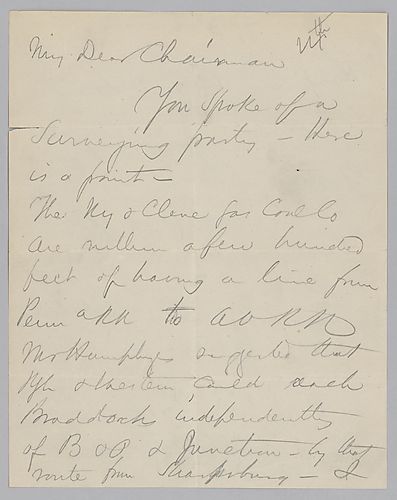 24th
My Dear Chairman
You spoke of a
Surveying party – Here
is a point –
The Ny & Cleve Gas Coal Co
are within a few hundred
feet of having a line from
Penn a RR to A V R R
Mr Humphrys suggested that
Pgh & Western could reach
Braddock independently
of B & O & Junction – by that
route from Sharpsburg – I